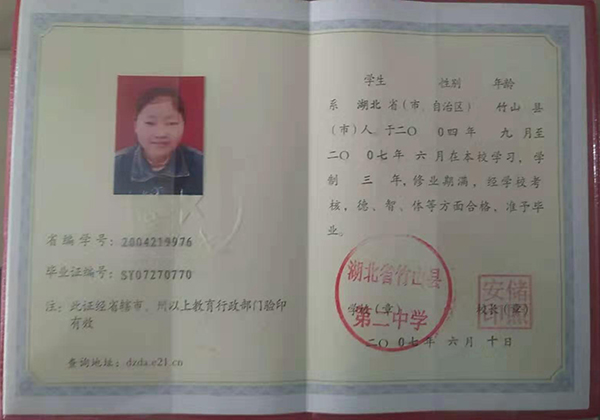 省编学号：2004219976
毕业证编号：SY07270770
注：此证经省辖市、州以上教育行政部门验印
有效
查询地址：dzda.e21.cn
学生 性别 年龄
系 湖北省(市、自治区) 竹山县
(市)人于二〇〇四年 九月至
二〇〇七年 六月在本校学习，学
制 三年，修业期满，经学校考
核，德、智、体等方面合格，准予毕
业。
湖北省竹山县
第二中学
学校(章) 校长(章)
二〇〇七年 六月 十日